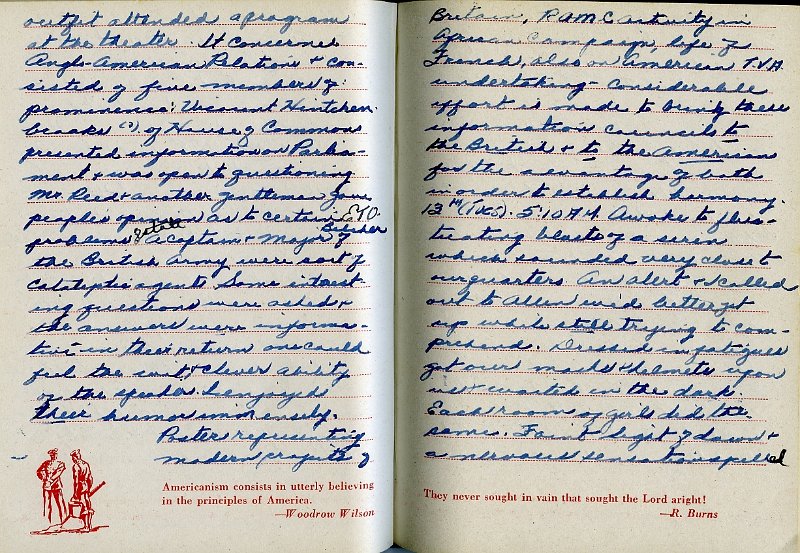 outfit attended a program
at the theater. It concerned
Anglo-American Relation + con-
sisted of five members of
prominence: Viscount Hinchen-
brooks (?) of House of Commons
presented information on Parlia-
ment + was open to questioning
Mr. Reed + another gentlemen gave
people's opinion as to certain E.T.O.
problems a Captain + Major of
the British Army were sort of
Catalyptic agents. Some interest-
ing questions were asked +
the answers were informa-
tive - in their return one could
feel the wit + clever ability
of the speaker. I enjoyed
their humor immensely.
Poster representing
modern projects of
Americanism consists in utterly believing
in the principles of America.
—Woodrow Wilson
Britain, RAMC activity in
African Campaign, life of
French, also on American T.V.A.
undertaking - considerable
effort is made to bring these
information councils to
the British + to the American
for the advantage of both
in order to establish harmony.
13th (Tues). 5:10 A.M. Awoke to
blasts of a siren
which sounded very close to
our quarters. An alert + I called
out to Allen we'd better get
up while still trying to com-
prehend. Dressed in fatigues
got our masks + helmets upon
us + waited in the dark.
Each room of girls did the
same. Faint light of dawn +
a nervous sensation spelled
They never sought in vain that sought the Lord aright!
—R. Burns